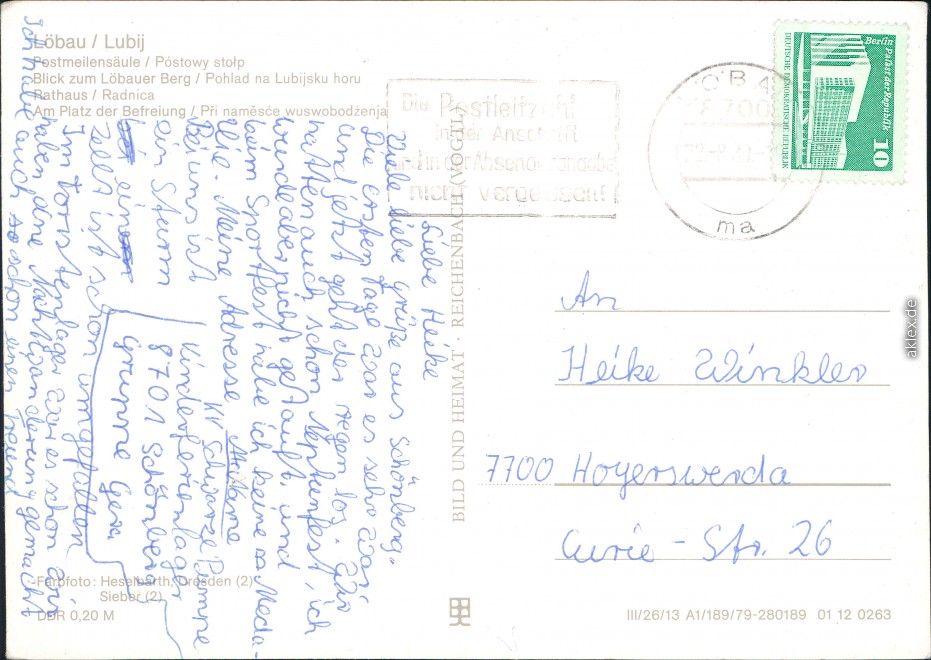 Löbau / Lubij
Postmeilensäule / Póstowy stołp
Blick zum Löbauer Berg / Pohlad na Lubijsku horu
Rathaus / Radnica
Am Platz der Befreiung / Při naměsće wuswobodźenja
Liebe Heike
Viele liebe grüße aus Schönberg.
Die ersten Tage war es sehr war
und jetzt geht der regen los. Wir
hatten auch schon Nephunfest, ich
wurde aber nicht getauft, und
beim Sportfest habe ich keine Meda-
llie. Meine Adresse
Bei uns ist
ein Sturm
ein
Zelt ist schon umgefallen
Im Vorstenlager war es schon, wir
haben eine Nachtwanderung gemacht
ich habe auch schon einen freund
KV Schwarze Pumpe
Kinderferienlager
8701 Schönberg
Gruppe Gera
BILD UND HEIMAT · REICHENBACH (VOGTL)
Die Postleitzahl
in der Anschrift
und in der Absenderangabe
nicht vergessen!
LÖBAU
8700
ma
DEUTSCHE DEMOKRATISCHE REPUBLIK
Berlin
Palast der Republik
10
An
Heike Winkler
7700 Hoyerswerda
Curie-Str. 26
Farbfoto: Heselbarth, Dresden (2)
Sieber (2)
DDR 0,20 M
III/26/13 A1/189/79-280189 01 12 0263
aklex.de